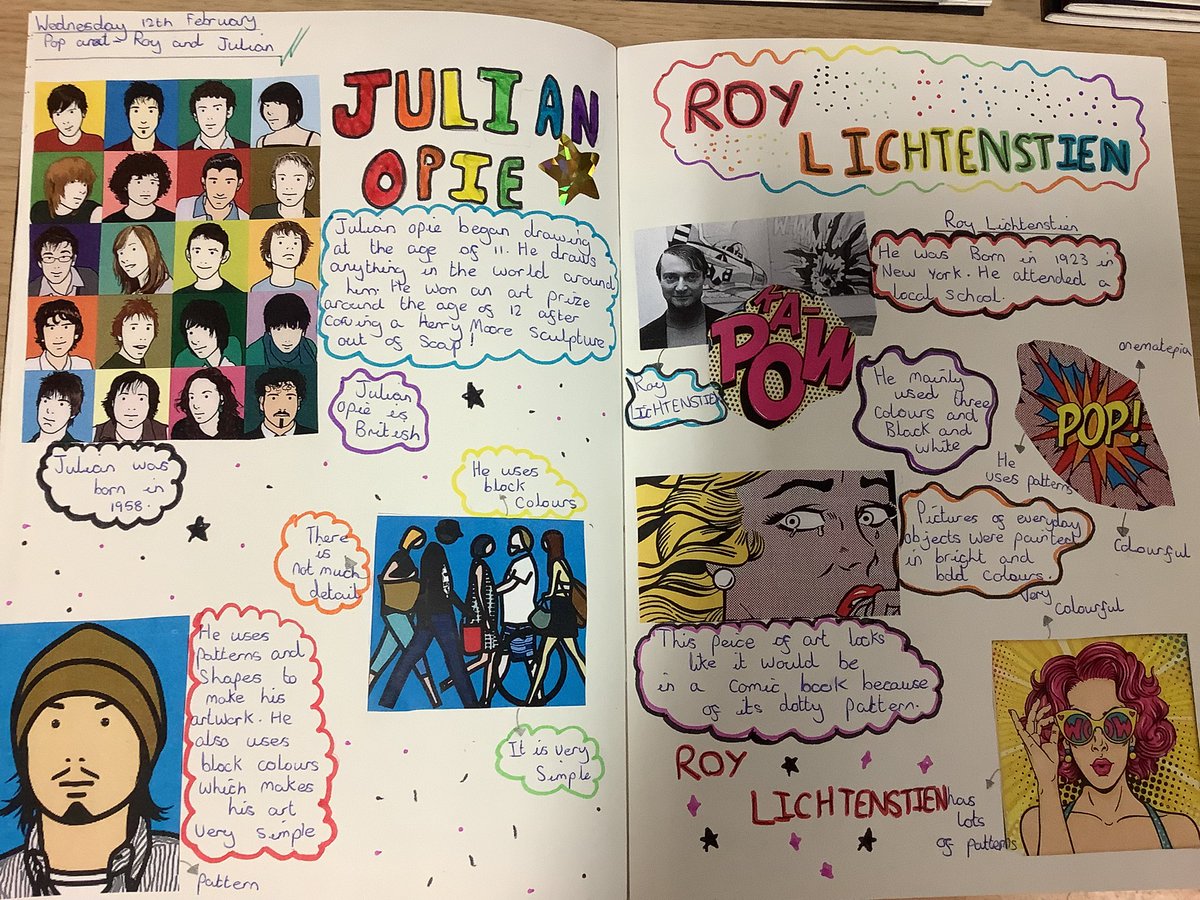 Wednesday 12th February
Pop art - Roy and Julian
JULIAN
OPIE
Julian opie began drawing
at the age of 11. He draws
anything in the world around
him. He won an art prize
around the age of 12 after
a Henry Moore Sculpture
out of Soap!
Julian
opie is
British
Julian was
born in
1958.
He uses
block
colours
There
is
not much
detail
He uses
Patterns and
Shapes to
make his
artwork. He
also uses
block colours
which makes
his art
very simple
It is very
Simple
Pattern
ROY
LICHTENSTIEN
Roy Lichtenstien
He was Born in 1923 in
New York. He attended a
local school.
KA-
POW
Roy
LICHTENSTIEN
He mainly
used three
colours and
Black and
white
onematepia
POP!
He
uses patterns
Colourful
Pictures of everyday
objects were painted
in bright and
bold colours.
Very
Colourful
This peice of art looks
like it would be
in a comic book because
of its dotty pattern.
WOW
ROY
LICHTENSTIEN has
lots
of patterns